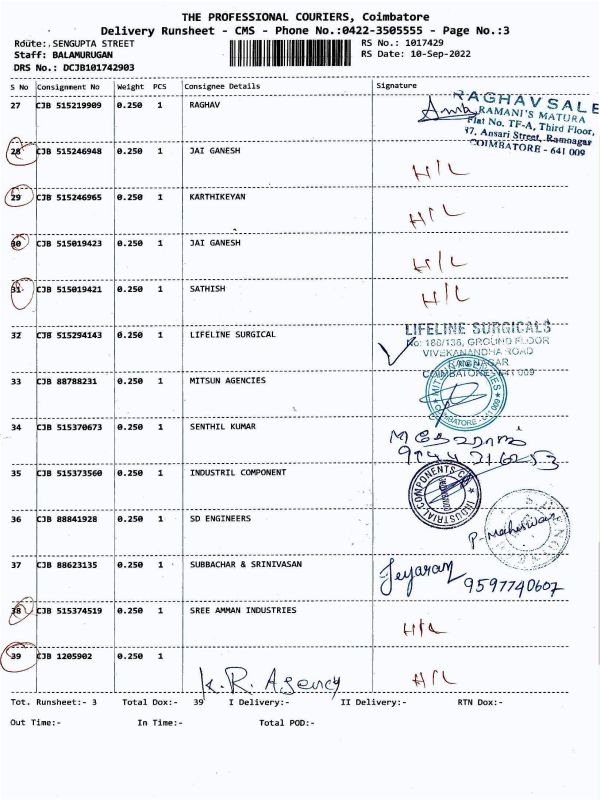 THE PROFESSIONAL COURIERS, Coimbatore
Delivery Runsheet - CMS - Phone No.:0422-3505555 - Page No.:3
Route:.SENGUPTA STREET RS No.: 1017429
Staff: BALAMURUGAN RS Date: 10-Sep-2022
DRS No.: DCJB101742903
S No Consignment No Weight PCS Consignee Details Signature
27 CJB 515219909 0.250 1 RAGHAV
RAGHAV SALE
RAMANI'S MATURA
Flat No. TF-A, Third Floor,
37, Ansari Street, Ramnagar
COIMBATORE - 641 009
28 CJB 515246948 0.250 1 JAI GANESH
H/L
29 CJB 515246965 0.250 1 KARTHIKEYAN
H/L
30 CJB 515019423 0.250 1 JAI GANESH
H/L
31 CJB 515019421 0.250 1 SATHISH
H/L
32 CJB 515294143 0.250 1 LIFELINE SURGICAL
LIFELINE SURGICALS
No: 180/136, GROUND FLOOR
VIVEKANANDHA ROAD
RAMNAGAR
COIMBATORE - 641 009
33 CJB 88788231 0.250 1 MITSUN AGENCIES
MITSUN AGENCIES
COIMBATORE - 641 009
34 CJB 515370673 0.250 1 SENTHIL KUMAR
35 CJB 515373560 0.250 1 INDUSTRIL COMPONENT
INDUSTRIAL COMPONENTS CO
COIMBATORE
36 CJB 88841928 0.250 1 SD ENGINEERS
P. Maheswari
37 CJB 88623135 0.250 1 SUBBACHAR & SRINIVASAN
Jeyaram
9597740607
38 CJB 515374519 0.250 1 SREE AMMAN INDUSTRIES
H/L
39 CJB 1205902 0.250 1
K.R. Agency H/L
Tot. Runsheet:- 3 Total Dox:- 39 I Delivery:- II Delivery:- RTN Dox:-
Out Time:- In Time:- Total POD:-